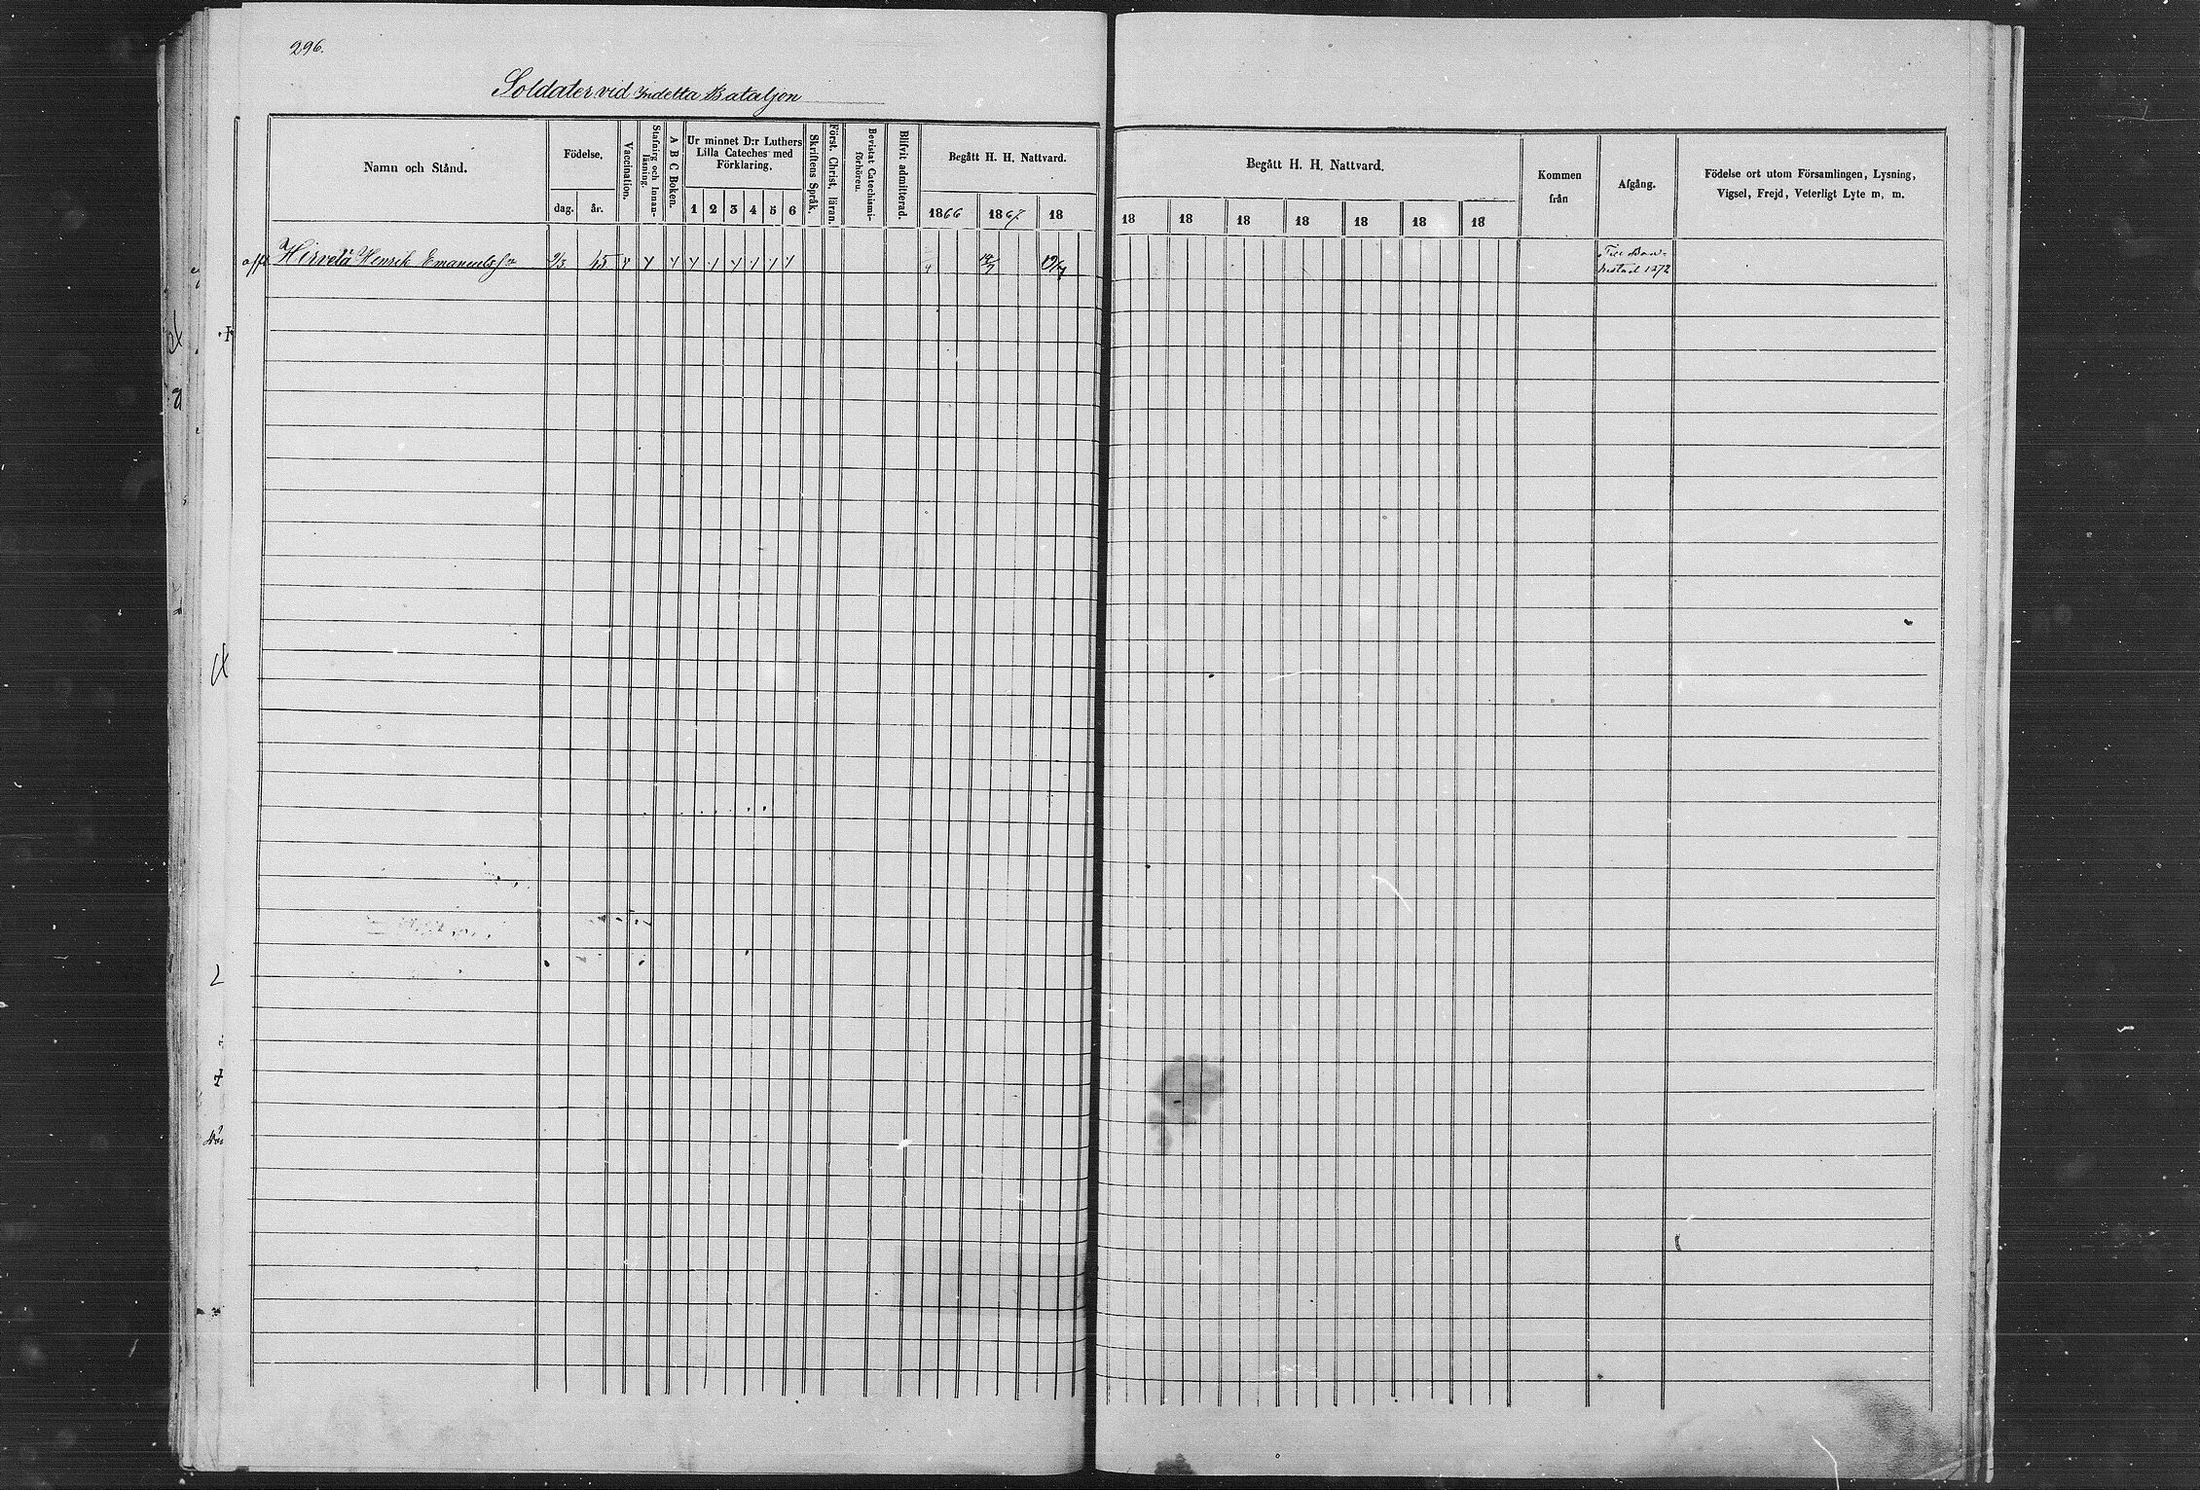 296.
Soldater vid Indelta Bataljon
Namn och Stånd.
Födelse.
dag.
år.
Vaccination.
Stafning och Innan-
läsning.
A B C Boken.
Ur minnet D:r Luthers
Lilla Cateches med
Förklaring.
1 2 3 4 5 6
Skriftens Språk.
Först. Christ. läran.
Bevistat Catechismi-
förhören.
Blifvit admitterad.
Begått H. H. Nattvard.
1866 1867 18
Begått H. H. Nattvard.
18 18 18 18 18 18 18
Kommen
från
Afgång.
Födelse ort utom Församlingen, Lysning,
Vigsel, Frejd, Veterligt Lyte m. m.
Hirvelä Henrik Emanuels 45
Till
1872